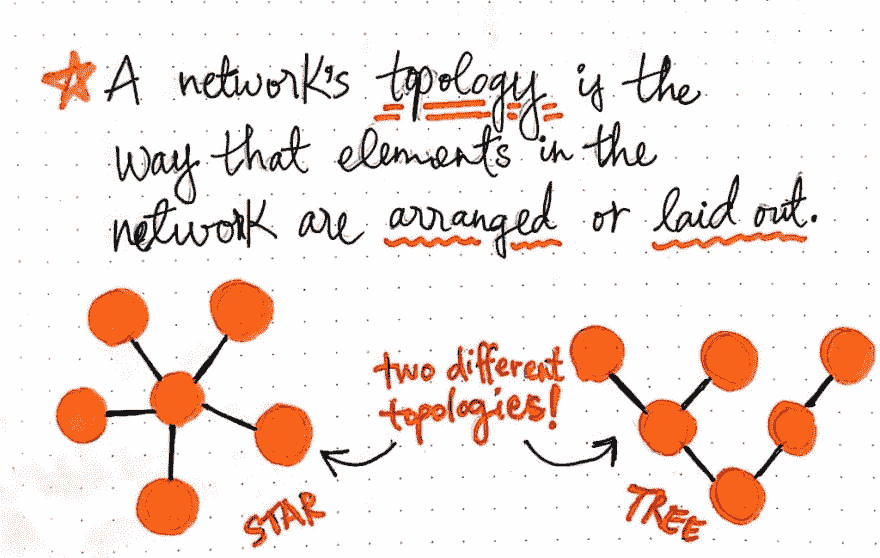 A network's topology is the
way that elements in the
network are arranged or laid out.
two different
topologies!
STAR
TREE